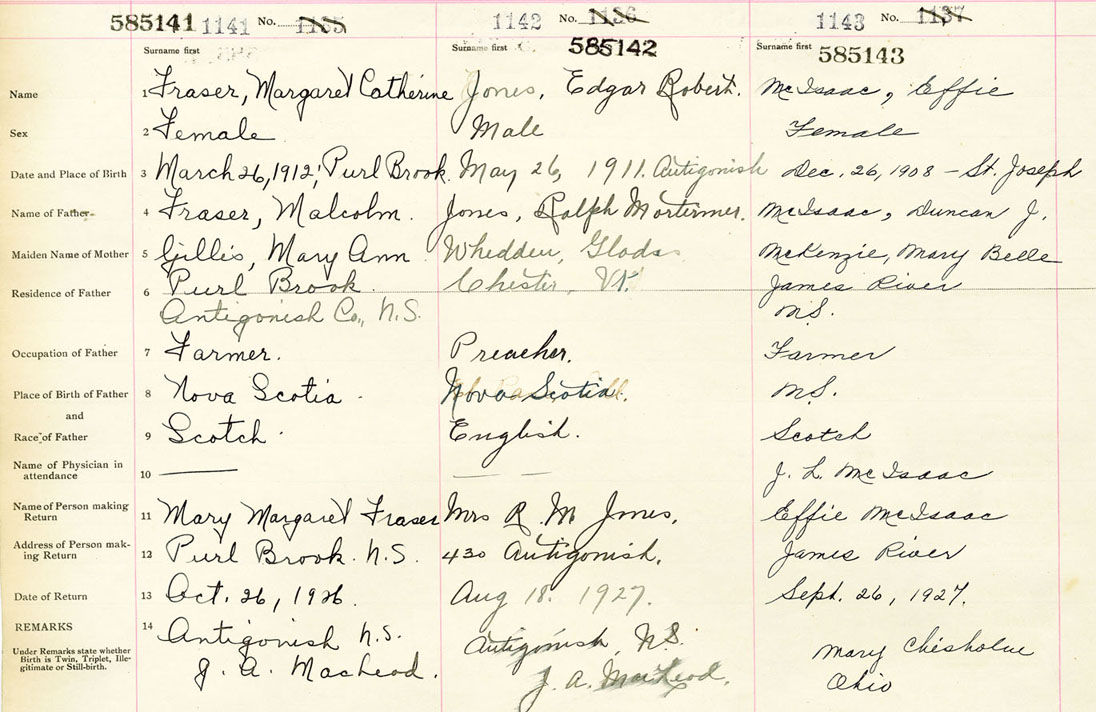 585141 1141 No. 1135 1142 No. 1136 1143 No. 1137
Surname first Surname first 585142 Surname first 585143
Name 1 Fraser, Margaret Catherine Jones, Edgar Robert. McIsaac, Effie
Sex 2 Female Male Female
Date and Place of Birth 3 March 26, 1912; Purl Brook. May 26, 1911. Antigonish Dec. 26, 1908 – St. Joseph
Name of Father 4 Fraser, Malcolm. Jones, Ralph Mortimer. McIsaac, Duncan J.
Maiden Name of Mother 5 Gillis, Mary Ann Whedden, McKenzie, Mary Belle
Residence of Father 6 Purl Brook. Chester, Vt. James River
Antigonish Co., N.S. N.S.
Occupation of Father 7 Farmer. Preacher. Farmer
Place of Birth of Father 8 Nova Scotia Nova Scotia. N.S.
and
Race of Father 9 Scotch English. Scotch
Name of Physician in
attendance 10 —— — — J. L. McIsaac
Name of Person making
Return 11 Mary Margaret Fraser Mrs R. M Jones. Effie McIsaac
Address of Person mak-
ing Return 12 Purl Brook. N.S. 430 Antigonish. James River
Date of Return 13 Oct. 26, 1926. Aug 18. 1927. Sept. 26, 1927.
REMARKS 14 Antigonish N.S. Antigonish, N.S. Mary Chisholm
Under Remarks state whether
Birth is Twin, Triplet, Ille-
gitimate or Still-birth. J. A. MacLeod. J. A. MacLeod. Ohio